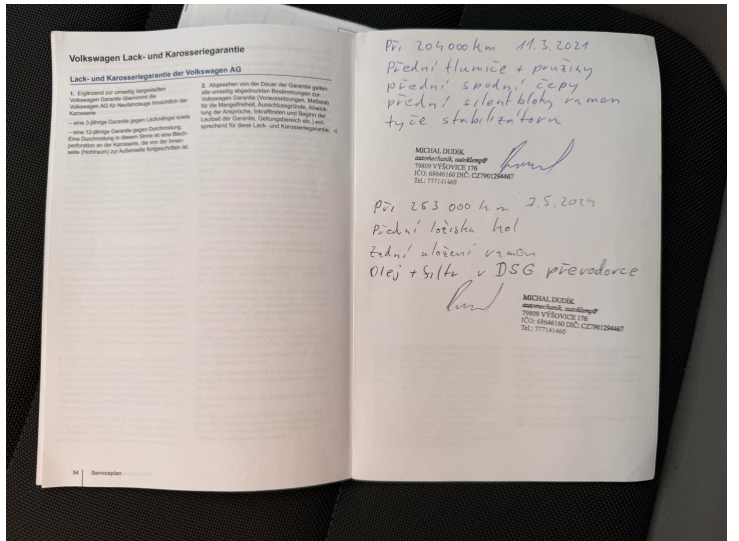 Volkswagen Lack- und Karosseriegarantie
Lack- und Karosseriegarantie der Volkswagen AG
1. Ergänzend zur umseitig dargestellten
Volkswagen Garantie übernimmt die
Volkswagen AG für Neufahrzeuge hinsichtlich der
Karosserie
– eine 3-jährige Garantie gegen Lackmängel sowie
– eine 12-jährige Garantie gegen Durchrostung.
Eine Durchrostung in diesem Sinne ist eine Blech-
perforation an der Karosserie, die von der Innen-
seite (Hohlraum) zur Außenseite fortgeschritten ist.
2. Abgesehen von der Dauer der Garantie gelten
alle umseitig abgedruckten Bestimmungen zur
Volkswagen Garantie (Voraussetzungen, Maßstab
für die Mangelfreiheit, Ausschlussgründe, Abwick-
lung der Ansprüche, Inkrafttreten und Beginn der
Laufzeit der Garantie, Geltungsbereich etc.) ent-
sprechend für diese Lack- und Karosseriegarantie.
54 Serviceplan
Při 204 000 km 11.3.2021
Přední tlumiče + pružiny
přední spodní čepy
přední silentbloky ramen
tyče stabilizátoru
MICHAL DUDÍK
automechanik, autoklempíř
79809 VÝŠOVICE 176
IČO: 68646160 DIČ: CZ7901294467
Tel.: 777141460
Při 253 000 km 7.5.2024
Přední ložiska kol
Zadní uložení ramen
Olej + filtr v DSG převodovce
MICHAL DUDÍK
automechanik, autoklempíř
79809 VÝŠOVICE 176
IČO: 68646160 DIČ: CZ7901294467
Tel.: 777141460